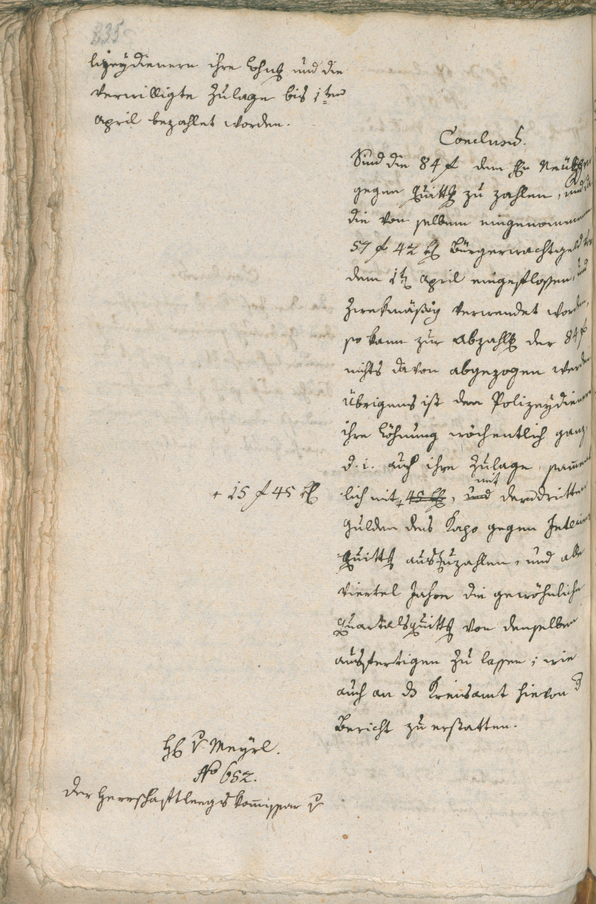 235
lizeydienern ihre Lohnt und die
verwilligte Zulage bis 1ten
April bezahlet worden.
Conclusum.
Sind die 84 f dem Hr
gegen Quittg zu zahlen, und
die von selbem eingenommenen
57 f 42 xr Bürgerwachtgeld
dem 1t April eingeflossen, und
zwekmäßig verwendet worden,
so kann zur Abzahlg der 84 f
nichts davon abgezogen werden
übrigens ist den Polizeydienern
ihre Löhnung wöchentlich ganz
d. i. auch ihre Zulage,
+ 15 f 45 xr
lich mit + 45 xr, und mit den dritten
Gulden des Kapo gegen Interims
Quittg auszuzahlen, und alle
viertel Jahre die gewöhnliche
Quartalsquittg von denselben
ausfertigen zu lassen; wie
auch an ds Kreisamt hievon d
Bericht zu erstatten.
H v Meyrl.
No 652.
Der Herrschaftl Kommissar v